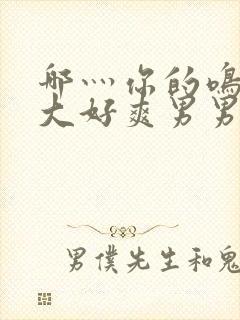 哪灬你的鸣
大好爽男男
男僕先生和鬼